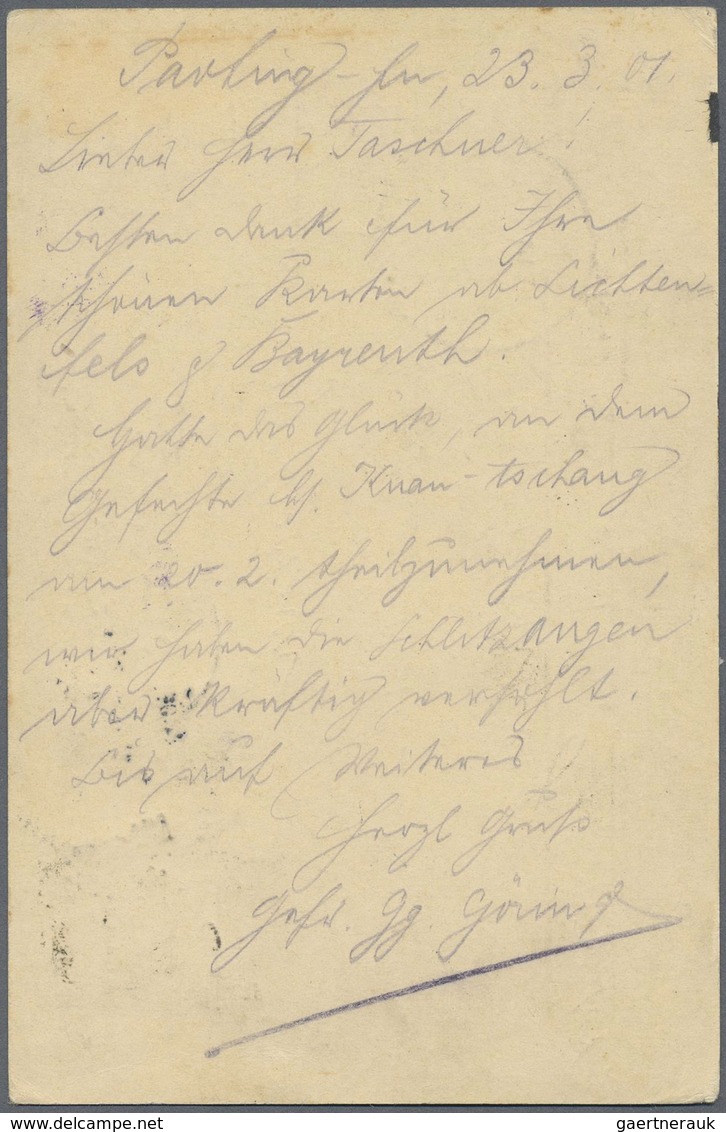 Paoting-fu, 23. 3. 01.
Lieber Herr Taschner!
Besten Dank für Ihre
schönen Karten ab Lichten=
fels & Bayreuth.
Hatte das Glück, an dem
Gefechte bei Kuan-tschang
am 20. 2. theilzunehmen,
wir haben die Schlitzaugen
aber kräftig versohlt.
Bis auf Weiteres
herzl Gruß
Gefr. Gg. Göring
delcampe.net
gaertnerauk